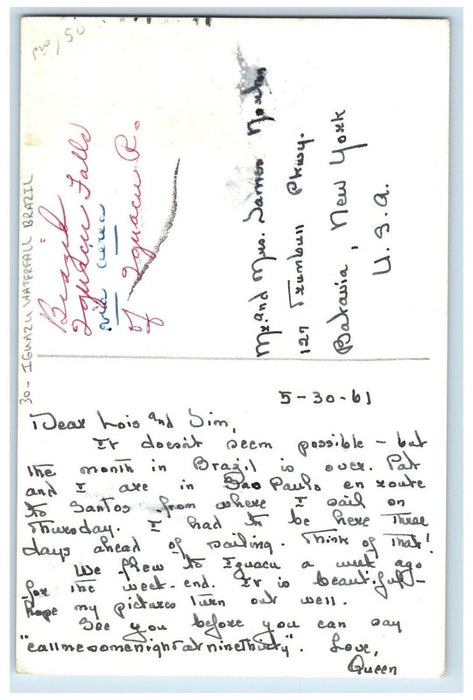 30 - IGUAZU WATERFALL BRAZIL
Brazil
Iguacu Falls
of Iguacu R.
Mr. and Mrs. James
127 Trumbull Pkwy.
Batavia, New York
U.S.A.
5-30-61
Dear Lois and Jim,
It doesn't seem possible - but
the month in Brazil is over. Pat
and I are in Sao Paulo en route
to Santos from where I sail on
Thursday. I had to be here three
days ahead of sailing. Think of that!
We flew to Iguacu a week ago
for the week-end. It is beautiful -
hope my pictures turn out well.
See you before you can say
"call me some night at nine thirty". Love,
Queen